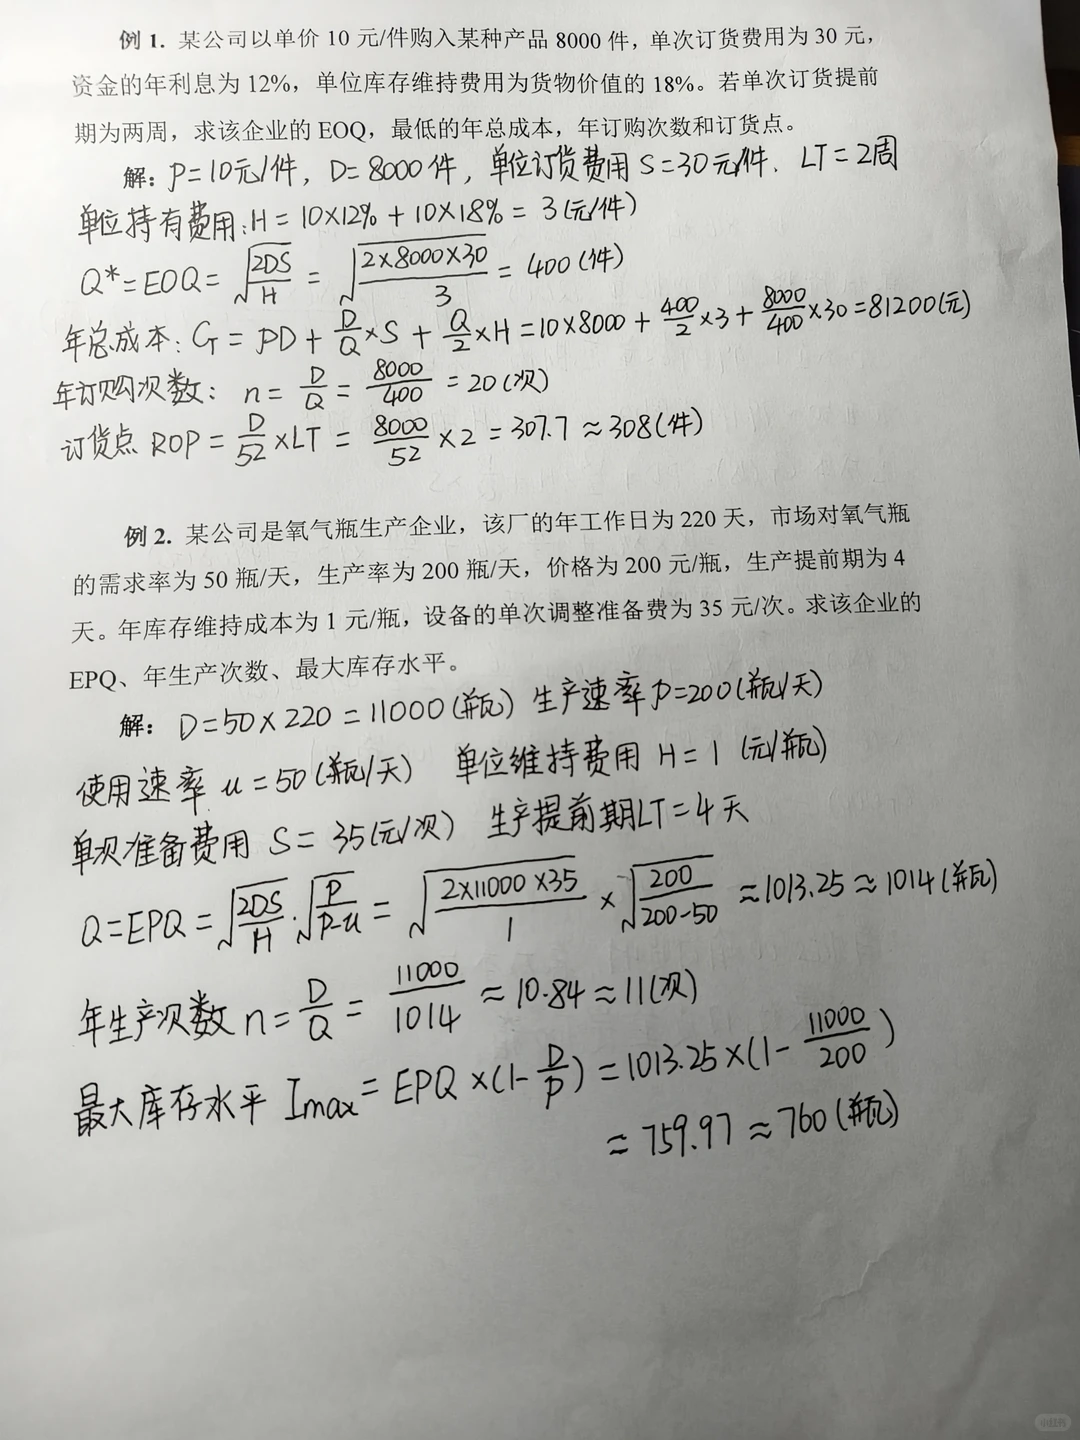 例 1. 某公司以单价 10 元/件购入某种产品 8000 件，单次订货费用为 30 元，
资金的年利息为 12%，单位库存维持费用为货物价值的 18%。若单次订货提前
期为两周，求该企业的 EOQ，最低的年总成本，年订购次数和订货点。
解：P=10元/件，D=8000件，单位订货费用 S=30元/件. LT=2周
单位持有费用:H=10×12%+10×18%=3(元/件)
Q*=EOQ=√(2DS/H)=√(2×8000×30/3)=400(件)
年总成本:G=PD+D/Q×S+Q/2×H=10×8000+400/2×3+8000/400×30=81200(元)
年订购次数: n=D/Q=8000/400=20(次)
订货点 ROP=D/52×LT=8000/52×2=307.7≈308(件)
例 2. 某公司是氧气瓶生产企业，该厂的年工作日为 220 天，市场对氧气瓶
的需求率为 50 瓶/天，生产率为 200 瓶/天，价格为 200 元/瓶，生产提前期为 4
天。年库存维持成本为 1 元/瓶，设备的单次调整准备费为 35 元/次。求该企业的
EPQ、年生产次数、最大库存水平。
解：D=50×220=11000(瓶) 生产速率P=200(瓶/天)
使用速率 u=50(瓶/天) 单位维持费用 H=1 (元/瓶)
单次准备费用 S=35(元/次) 生产提前期LT=4天
Q=EPQ=√(2DS/H)·√(P/(P-u))=√(2×11000×35/1)×√(200/(200-50))≈1013.25≈1014(瓶)
年生产次数 n=D/Q=11000/1014≈10.84≈11(次)
最大库存水平 Imax=EPQ×(1-D/P)=1013.25×(1-11000/200)
≈759.97≈760(瓶)
小红书